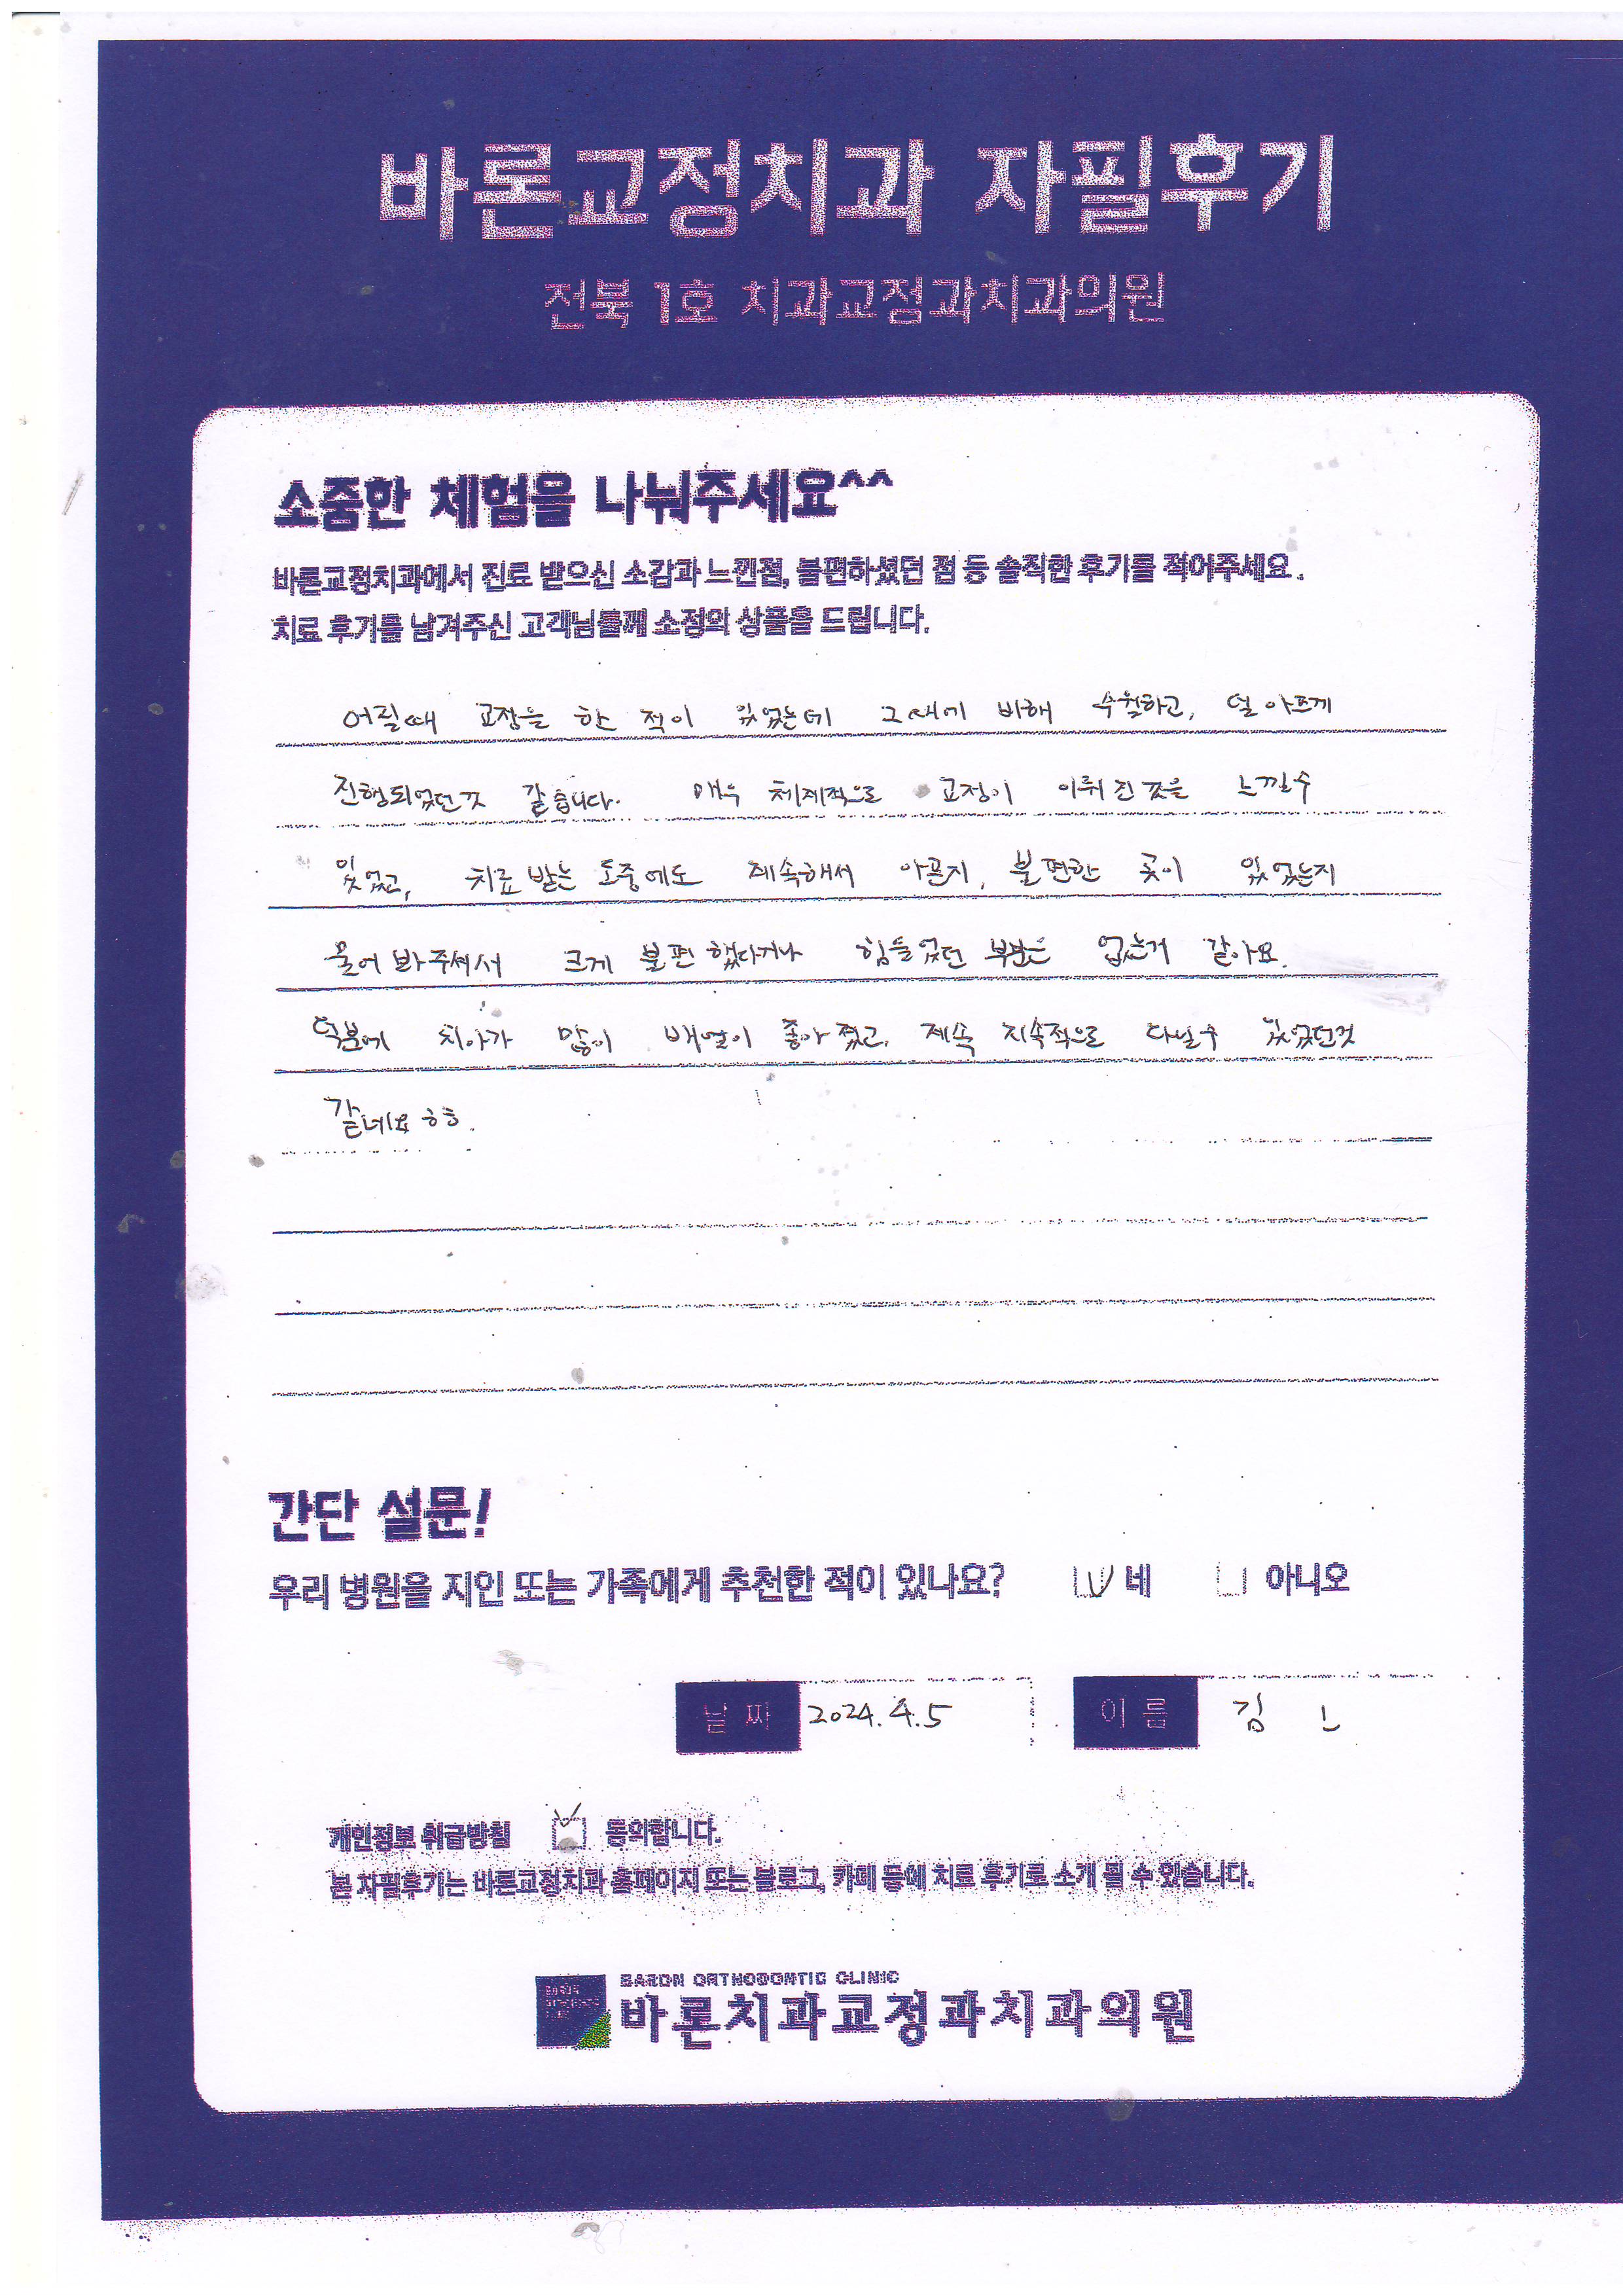 바론교정치과 자필후기
전북 1호 치과교정과치과의원
소중한 체험을 나눠주세요^^
바른교정치과에서 진료 받으신 소감과 느낀점, 불편하셨던 점 등 솔직한 후기를 적어주세요.
치료 후기를 남겨주신 고객님들께 소정의 상품을 드립니다.
어릴때 교정을 한 적이 있었는데 그때에 비해 수월하고, 덜 아프게
진행되었던것 같습니다. 매우 체계적으로 교정이 이뤄진 것을 느낄수
있었고, 치료 받는 도중에도 계속해서 아픈지, 불편한 곳이 있었는지
물어 봐주셔서 크게 불편했다거나 힘들었던 부분은 없는거 같아요.
덕분에 치아가 많이 배열이 좋아졌고, 계속 지속적으로 다닐수 있었던것
같네요 ㅎㅎ.
간단 설문!
우리 병원을 지인 또는 가족에게 추천한 적이 있나요? 네 아니오
날 짜 2024.4.5 이 름 김
개인정보 취급방침 동의합니다.
본 자필후기는 바론교정치과 홈페이지 또는 블로그, 카페 등에 치료 후기로 소개 될 수 있습니다.
BARON ORTHODONTIC CLINIC
바론치과교정과치과의원